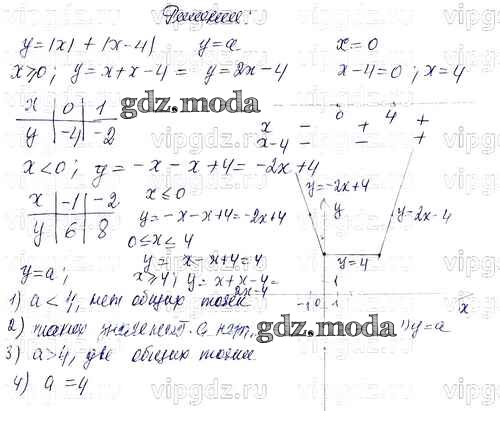 Решение:
y=|x| + |x-4| y=a x=0
x≥0; y=x+x-4= y=2x-4 x-4=0; x=4
x 0 1
y -4 -2
gdz.moda
0 4
x - + +
x-4 - - +
x<0; y=-x-x+4=-2x+4
x -1 -2
y 6 8
x≤0
y=-x-x+4=-2x+4
0≤x≤4
y= x-x+4=4
x≥4; y=x+x-4=
2x-4
y=-2x+4
y
y=2x-4
y=4
1
-1 0 1
x
y=a
y=a;
1) a<4, нет общих точек
2) такого значения a нет,
gdz.moda
3) a>4, две общих точки
4) a=4
vipgdz.ru